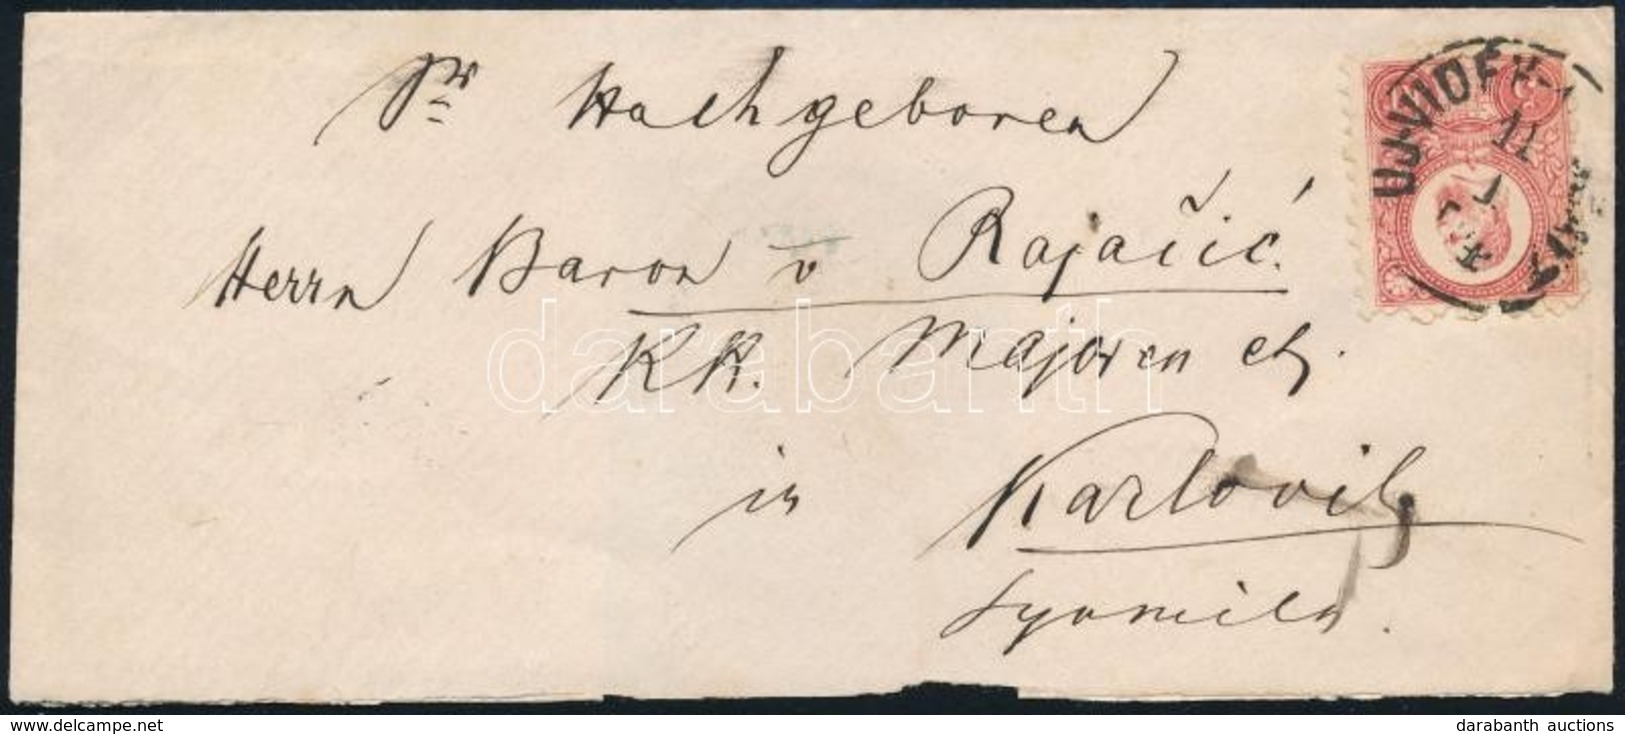 Sr Hochgeboren
UJ-VIDÉK
11
Herrn Baron v Rajačić.
KK. Major en et
in Karlovitz
Syrmien.
darabanth
www.delcampe.net
darabanth auctions